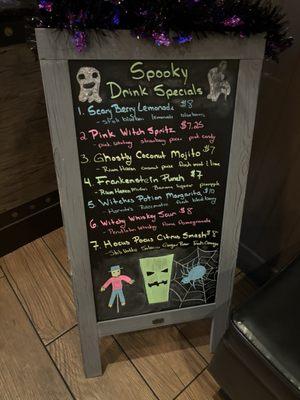 Spooky
Drink Specials
1. Scary Berry Lemonade $8
- Stoli blueberry lemonade blueberries
2 Pink Witch Spritz $7.25
- pink whitney strawberry puree pink candy
3 Ghostly Coconut Mojito $7
- Rum Haven coconut puree fresh mint & lime
4. Frankenstein Punch $7
- Rum Haven Banana liqueur pineapple
5 Witches Potion Margarita
- fresh blackberry
6. Witchy Whisky Sour $8
- Pendleton Whisky lime Pomegranate
7. Hocus Pocus Citrus Smash $8
- Stoli Ginger Beer fresh Orange